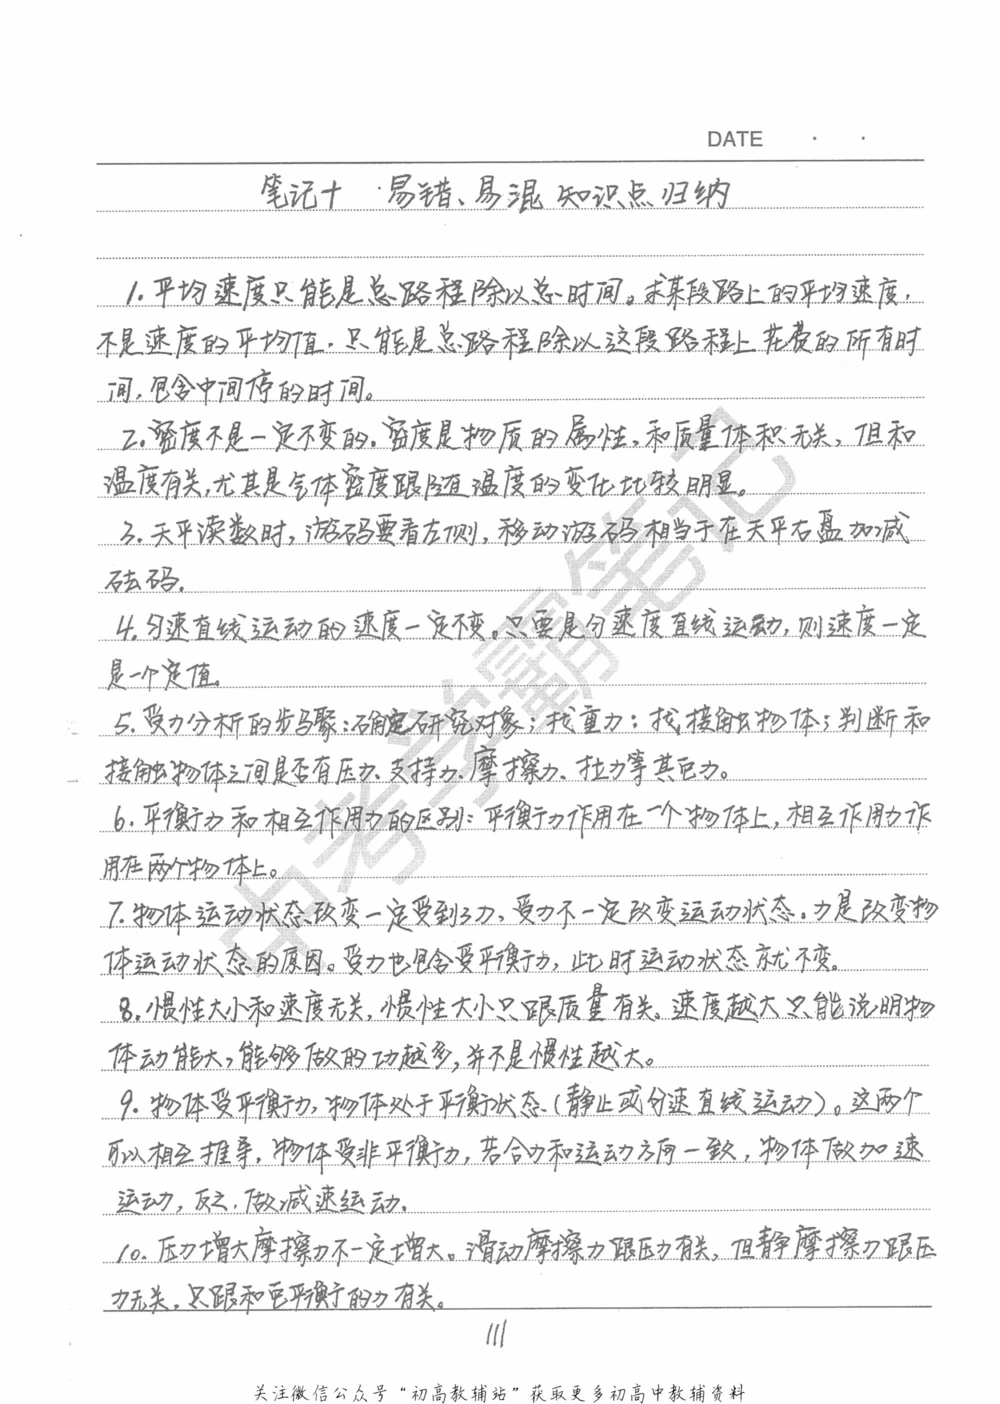 DATE · ·
笔记十 ·易错、易混知识点归纳
1.平均速度只能是总路程除以总时间。求某段路上的平均速度,
不是速度的平均值,只能是总路程除以这段路程上花费的所有时
间,包含中间停的时间。
2.密度不是一定不变的。密度是物质的属性,和质量体积无关,但和
温度有关,尤其是气体密度跟随温度的变化比较明显。
3.天平读数时,游码要看左侧,移动游码相当于在天平右盘加减
砝码.
4.匀速直线运动的速度一定不变。只要是匀速度直线运动,则速度一定
是一个定值。
5.受力分析的步骤:确定研究对象;找重力;找接触物体;判断和
接触物体之间是否有压力、支持力、摩擦力、拉力等其它力。
6.平衡力和相互作用力的区别:平衡力作用在一个物体上,相互作用力作
用在两个物体上。
7.物体运动状态改变一定受到了力,受力不一定改变运动状态。力是改变物
体运动状态的原因。受力也包含受平衡力,此时运动状态就不变。
8.惯性大小和速度无关,惯性大小只跟质量有关。速度越大只能说明物
体动能大,能够做的功越多,并不是惯性越大。
9.物体受平衡力,物体处于平衡状态(静止或匀速直线运动)。这两个
可以相互推导,物体受非平衡力,若合力和运动方向一致,物体做加速
运动,反之,做减速运动.
10.压力增大摩擦力不一定增大。滑动摩擦力跟压力有关,但静摩擦力跟压
力无关,只跟和它平衡的力有关。
111
关注微信公众号“初高教辅站”获取更多初高中教辅资料
中考学霸笔记